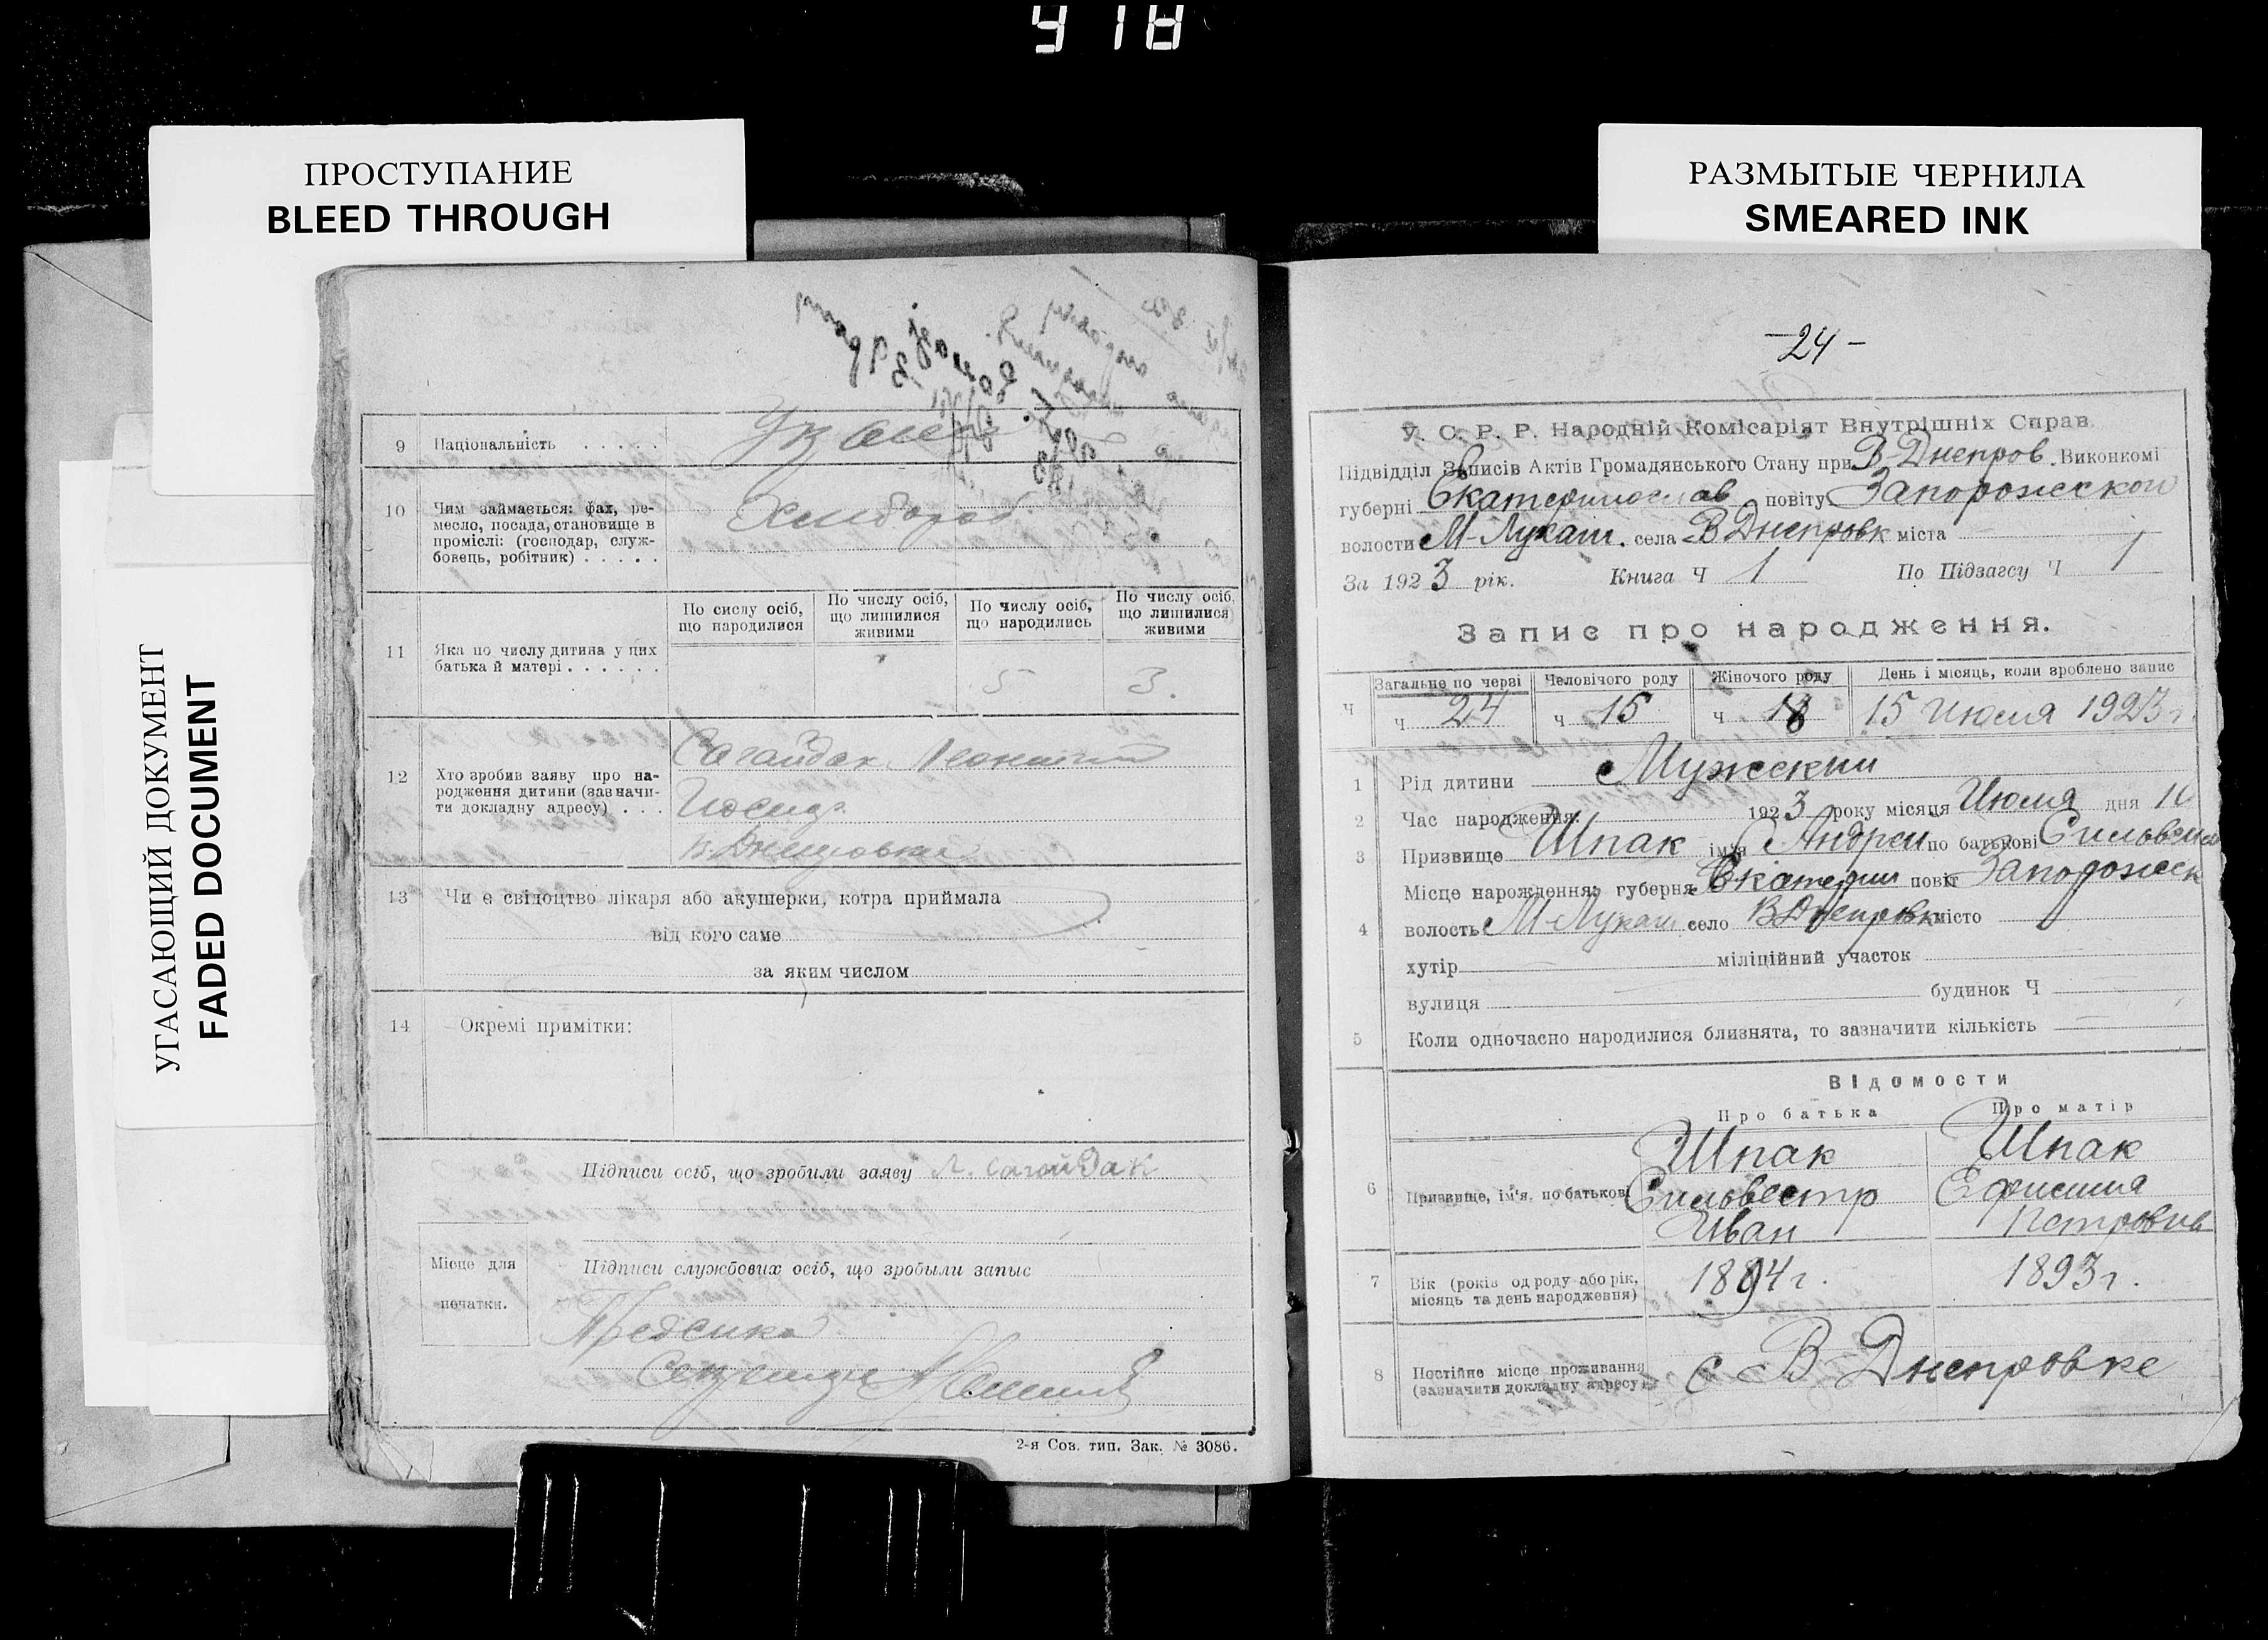 918
ПРОСТУПАНИЕ
BLEED THROUGH
РАЗМЫТЫЕ ЧЕРНИЛА
SMEARED INK
УГАСАЮЩИЙ ДОКУМЕНТ
FADED DOCUMENT
9 Національність . . . . .
10 Чим займається: фах, ре-
месло, посада, становище в
проміслі: (господар, служ-
бовець, робітник) . . . . .
Хлебороб
11 Яка по числу дитина у цих
батька й матері . . . . . .
По сислу осіб,
що народилися
По числу осіб,
що лишилися
живими
По числу осіб,
що народились
По числу осіб,
що лишилися
живими
5 3.
12 Хто зробив заяву про на-
родження дитини (зазначи-
ти докладну адресу) . . .
Сагайдак Леонтий
В. Днепровка
13 Чи є свідоцтво лікаря або акушерки, котра приймала
від кого саме
за яким числом
14 Окремі примітки:
Підписи осіб, що зробили заяву Л. Сагайдак
Місце для
початки.
Підписи службових осіб, що зробыли запыс
2-я Сов. тип. Зак. № 3086.
-24-
У. С. Р. Р. Народній Комісаріят Внутрішніх Справ
Підвідділ Записів Актів Громадянського Стану при В-Днепров. Виконкомі
губерні Екатеринослав повіту Запорожской
волости М-Лукаш. села В Днепровк міста
За 1923 рік. Книга Ч 1 По Підзагсу Ч 1
Запис про народження.
Загальне по черзі Человічого роду Жіночого роду День і місяць, коли зроблено запис
Ч ч 24 ч 15 ч 15 Июля 1923 г.
1 Рід дитини Мужский
2 Час народження: 1923 року місяця Июля дня
3 Призвище Шпак ім'я Андрей по батькові
4 Місце нарождення: губерня Екатерин повіт Запорожск
волость М-Лукаш село В Днепровк місто
хутір міліційний участок
вулиця будинок Ч
5 Коли одночасно народилися близнята, то зазначити кількість
Відомости
Про батька Про матір
6 Призвище, ім'я, по батькові
Шпак Шпак
Сильвестр Ефисиия
Иван Петровна
7 Вік (років од роду або рік,
місяць та день народження)
1894 г. 1893 г.
8 Постійне місце проживання
(зазначити докладну адресу)
с В Днепровке